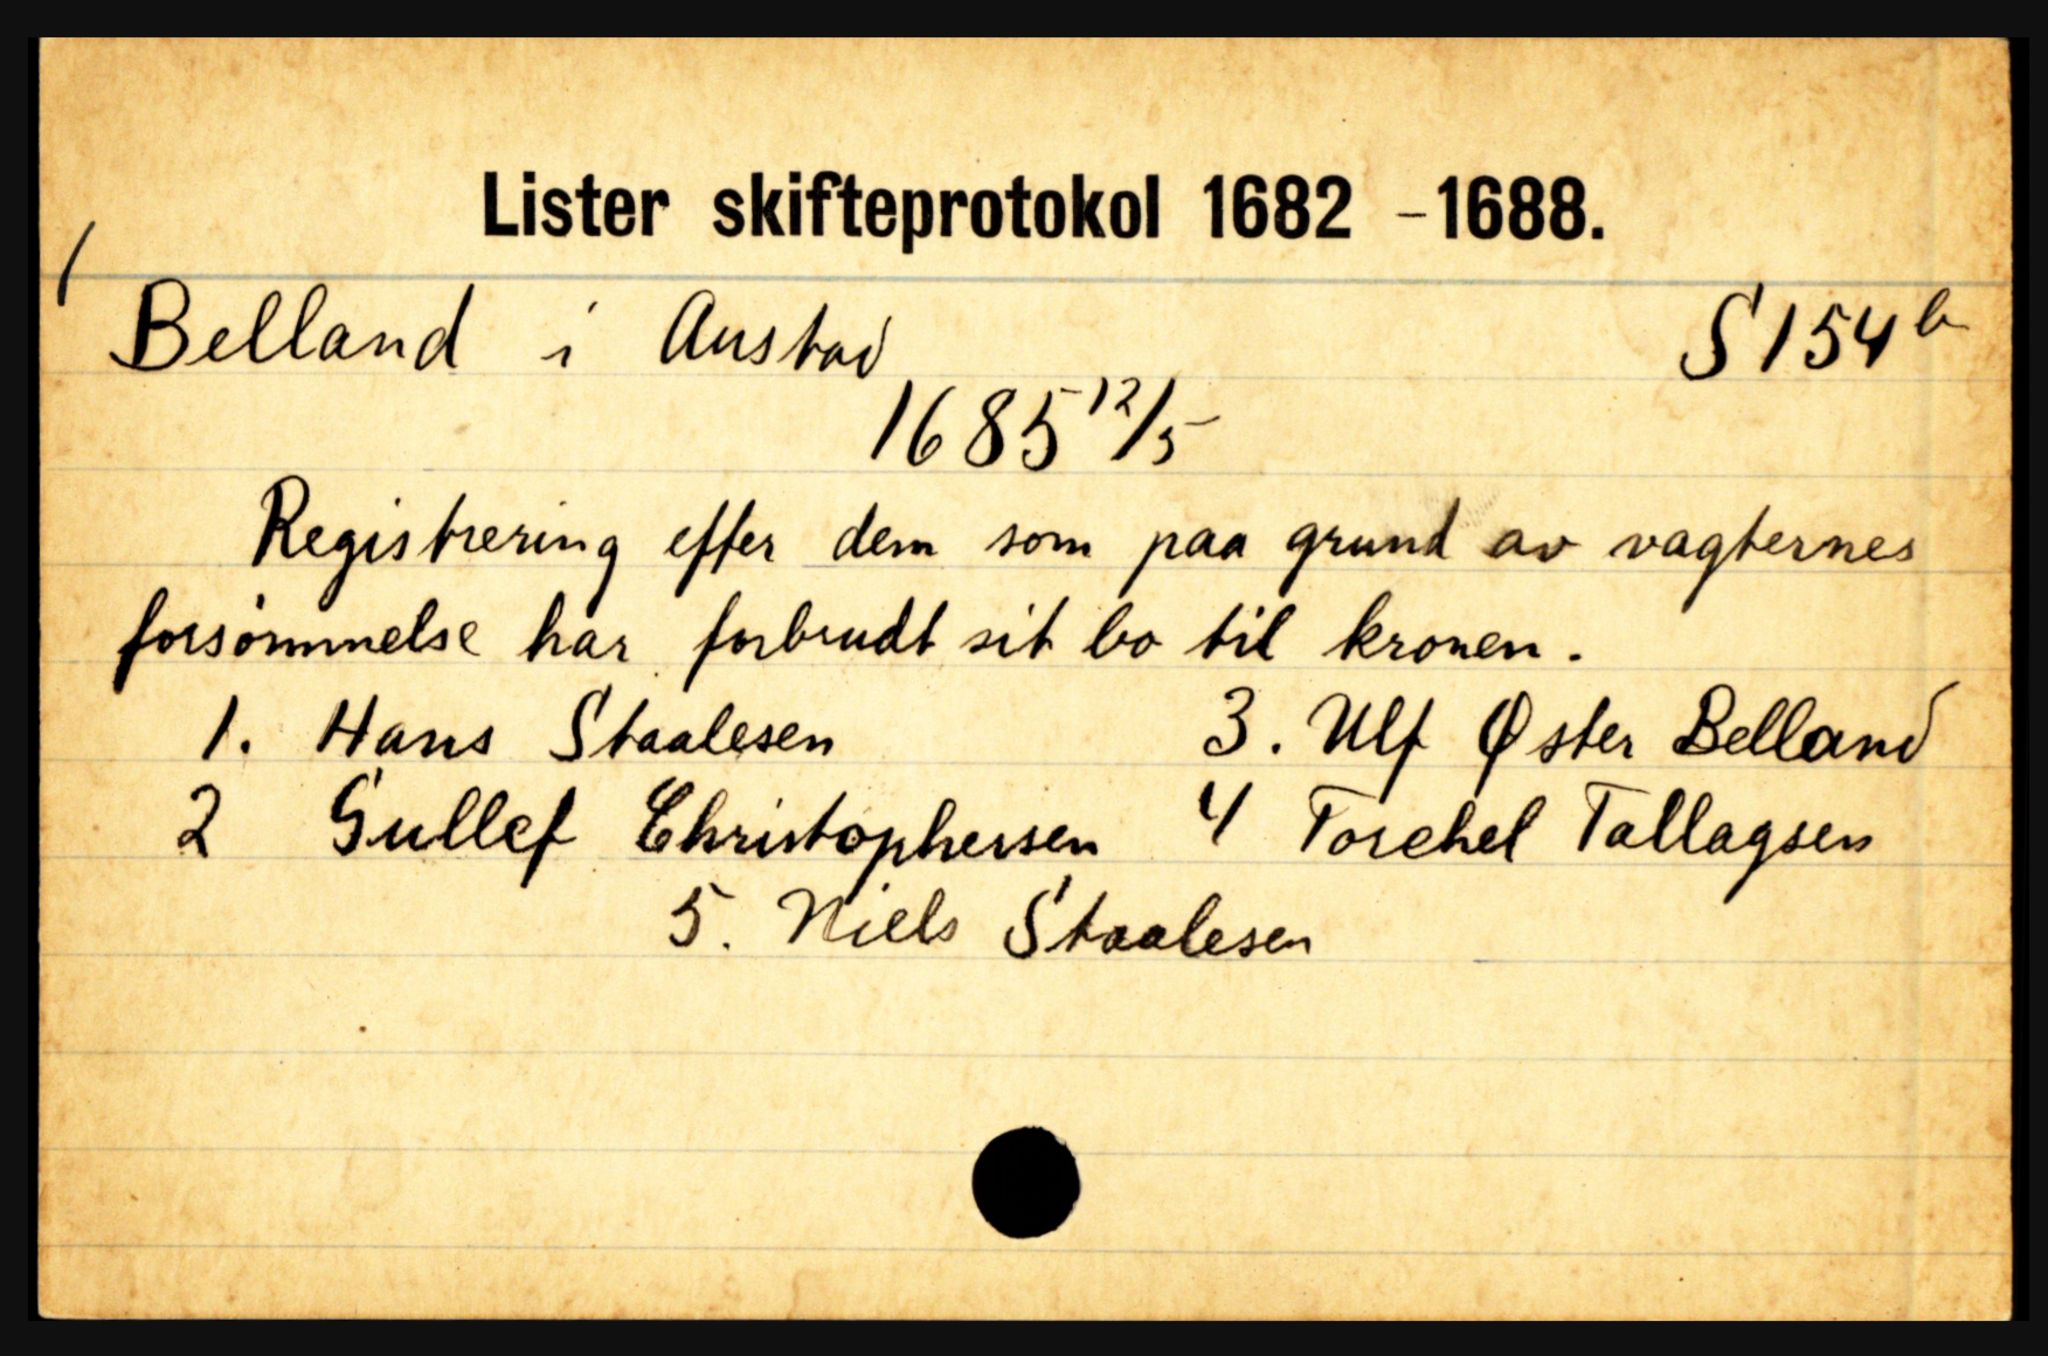 Lister skifteprotokol 1682 -1688.
Belland i Austad S 154 b
1685 12/5
Registrering efter dem som paa grund av vagternes
forsømmelse har forbrudt sit bo til kronen.
1. Hans Staalesen 3. Ulf Øster Belland
2 Gullef Christophersen 4 Torchel Tallagsen
5. Niels Staalesen